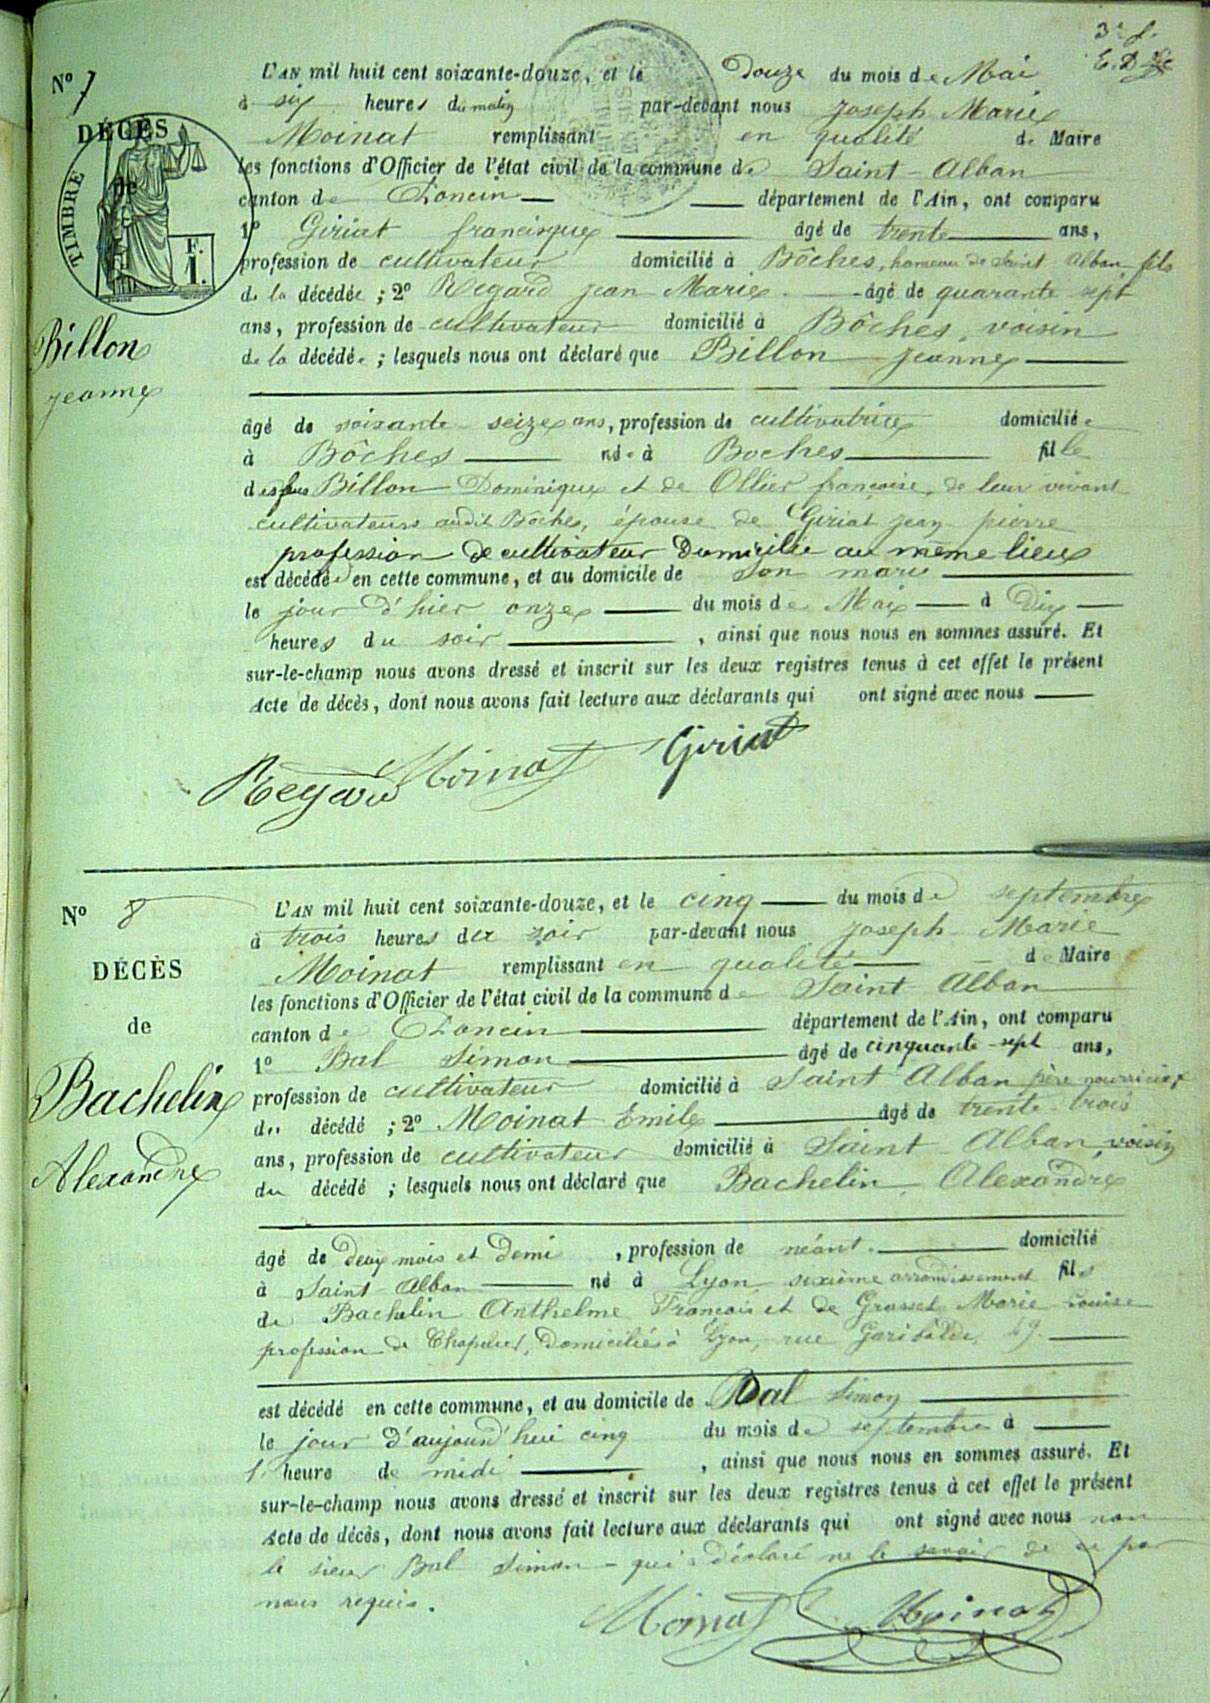 3e f.
No 7
L'AN mil huit cent soixante-douze, et le douze du mois de Mai
à six heures du matin par-devant nous Joseph Marie
DÉCÈS
Moinat remplissant en qualité de Maire
les fonctions d'Officier de l'état civil de la commune de Saint-Alban
de
TIMBRE
F.
1.
canton de Poncin département de l'Ain, ont comparu
1o Giriat françisque âgé de trente ans,
profession de cultivateur domicilié à Bôches, hameau de Saint Alban, fils
de la décédée ; 2o Regard Jean Marie âgé de quarante sept
ans, profession de cultivateur domicilié à Bôches, voisin
Billon
Jeanne
de la décédée ; lesquels nous ont déclaré que Billon Jeanne
âgé de soixante seize ans, profession de cultivatrice domiciliée
à Bôches née à Boches fille
des feus Billon Dominique et de Ollier françoise, de leur vivant
cultivateurs audit Bôches, épouse de Giriat Jean pierre
profession de cultivateur Domicilié au même lieu
est décédée en cette commune, et au domicile de son mari
le jour d'hier onze du mois de Mai à Dix
heures du soir , ainsi que nous nous en sommes assuré. Et
sur-le-champ nous avons dressé et inscrit sur les deux registres tenus à cet effet le présent
Acte de décès, dont nous avons fait lecture aux déclarants qui ont signé avec nous
Regard Moinat Giriat
No 8
L'AN mil huit cent soixante-douze, et le cinq du mois de septembre
à trois heures du soir par-devant nous Joseph Marie
DÉCÈS
Moinat remplissant en qualité de Maire
les fonctions d'Officier de l'état civil de la commune de Saint Alban
de
canton de Poncin département de l'Ain, ont comparu
1o Bal Simon âgé de cinquante-sept ans,
Bachelin
Alexandre
profession de cultivateur domicilié à Saint Alban père nourricier
du décédé ; 2o Moinat Emile âgé de trente trois
ans, profession de cultivateur domicilié à Saint Alban, voisin
du décédé ; lesquels nous ont déclaré que Bachelin Alexandre
âgé de deux mois et demi , profession de néant. domicilié
à Saint Alban né à Lyon sixième arrondissement fils
de Bachelin Anthelme François et de Grasset Marie Louise
profession de Chapelier, Domiciliés à Lyon, rue Garibaldi,
est décédé en cette commune, et au domicile de Bal Simon
le jour d'aujourd'hui cinq du mois de septembre à
heure de midi , ainsi que nous nous en sommes assuré. Et
sur-le-champ nous avons dressé et inscrit sur les deux registres tenus à cet effet le présent
Acte de décès, dont nous avons fait lecture aux déclarants qui ont signé avec nous non
le sieur Bal Simon qui a déclaré ne le savoir de ce par
nous requis.
Moinat Moinat